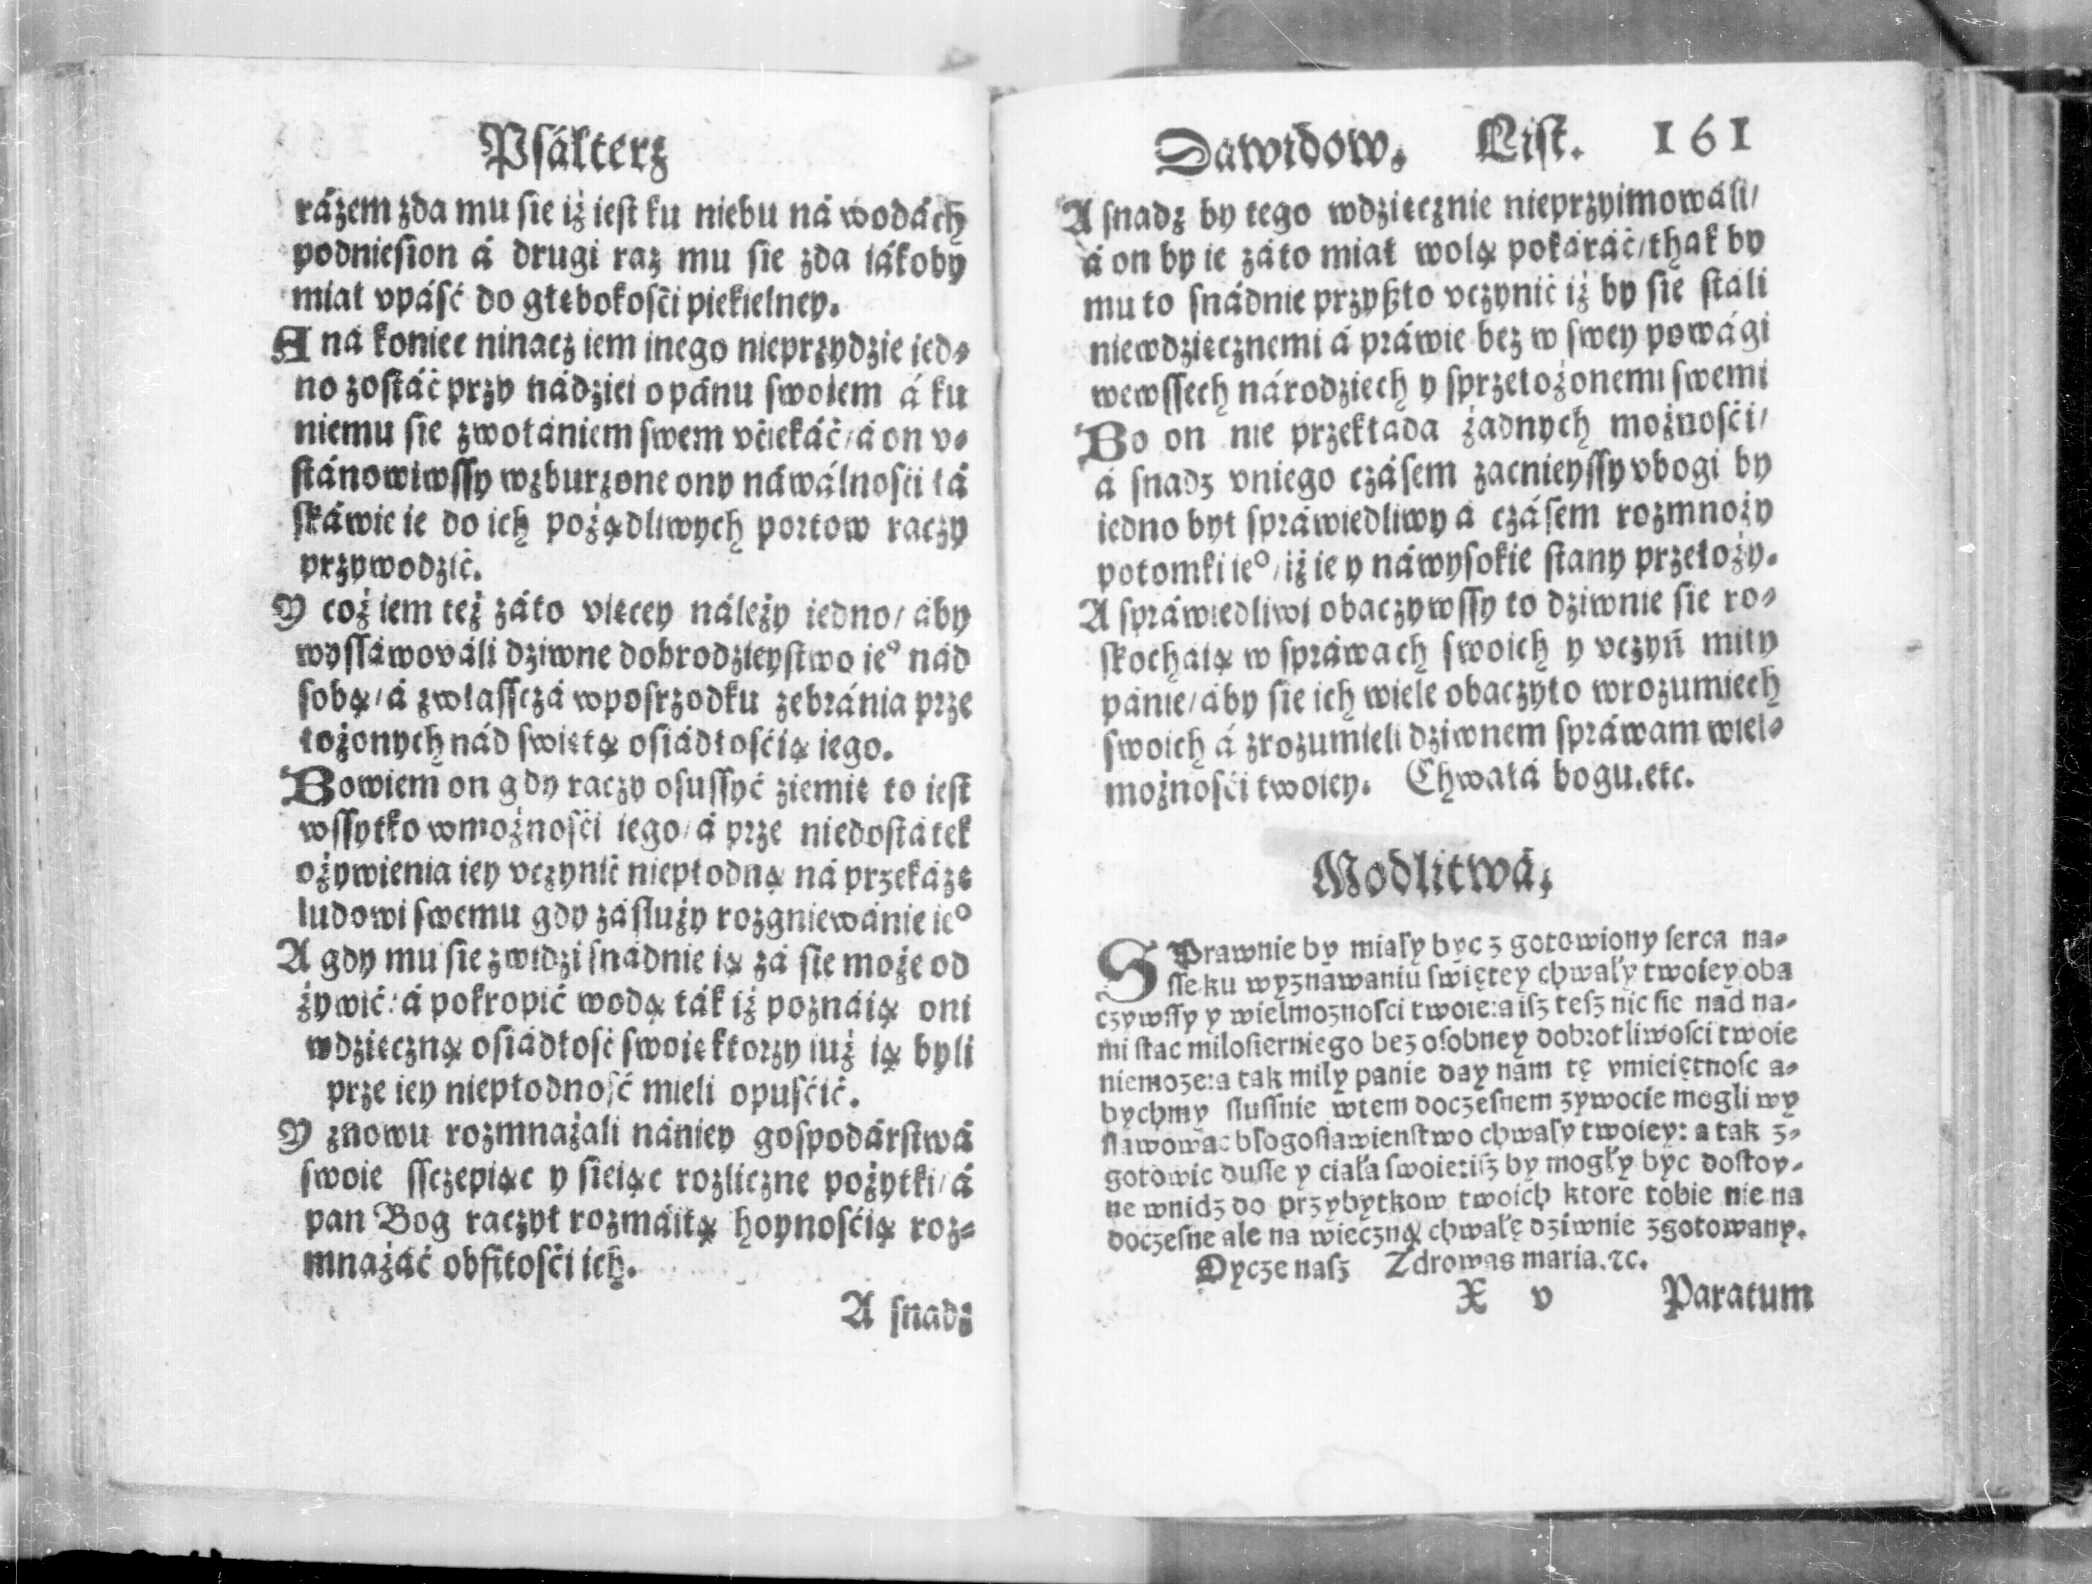 Psálterz
rázem zda mu sie iż iest ku niebu ná wodách
podniesion á drugi raz mu sie zda iákoby
miał vpáść do głębokośći piekielney.
A ná koniec ninacz iem inego nieprzydzie ied⸗
no zostáć przy nádziei o pánu swoiem á ku
niemu sie zwołániem swem vćiekáć/á on v⸗
stánowiwſſy wzburzone ony náwálnośći łá
skáwie ie do ich pożądliwych portow raczy
przywodzić.
Y coż iem też záto vięcey náleży iedno/ áby
wysláwováli dziwne dobrodzieystwo ieº nád
sobą/á zwłaſſczá wposrzodku zebránia prze
łożonych nád swiętą osiádłośćią iego.
Bowiem on gdy raczy osuſſyć ziemię to iest
wſſytko wmożnośći iego/á prze niedostátek
ożywienia iey vczynić niepłodną ná przekázę
ludowi swemu gdy zásłuży rozgniewánie ieº
A gdy mu sie zwidzi snádnie ią zá sie może od
żywić/á pokropić wodą ták iż poznáią oni
wdzięczną osiádłość swoię ktorzy iuż ią byli
prze iey niepłodność mieli opuśćić.
Y znowu rozmnażáli nániey gospodárstwá
swoie ſſczepiąc y sieiąc rozliczne pożytki/á
pan Bog raczył rozmáitą hoynośćią roz⸗
mnażáć obfitośći ich.
A snadz
Dawidow. List. 161
A snadz by tego wdzięcznie nieprzyimowáli/
á on by ie záto miał wolą pokáráć/thak by
mu to snádnie przyßło vczynić iż by sie stáli
niewdzięcznemi á práwie bez w swey powági
wewſſech národziech y sprzełożonemi swemi
Bo on nie przekłada żadnych możnośći/
á snadz vniego czásem zacnieyſſy vbogi by
iedno był spráwiedliwy á czásem rozmnoży
potomki ieº/iż ie y náwysokie stany przełoży.
A spráwiedliwi obaczywſſy to dziwnie sie ro⸗
skocháią w spráwach swoich y vczyń miły
pánie/áby sie ich wiele obaczyło wrozumiech
swoich á zrozumieli dziwnem spráwam wiel⸗
możnośći twoiey. Chwałá bogu.etc.
Modlitwá.
SPrawnie by miały byc z gotowiony ſerca na⸗
ſſe ku wyznawaniu ſwiętey chwały twoiey oba
czywſſy y wielmoznoſci twoie:a iſz teſz nic ſie nad na⸗
mi ſtac miloſierniego bez oſobney dobrotliwoſci twoie
niemoze:a tak mily panie day nam tę vmieiętnoſc a⸗
bychmy ſluſſnie wtem doczeſnem zywocie mogli wy
ſlawowac błogoſlawienſtwo chwały twoiey: a tak z⸗
gotowic duſſe y ciała ſwoie:iſz by mogły byc doſtoy⸗
ne wnidz do przybytkow twoich ktore tobie nie na
doczeſne ale na wieczną chwałę dziwnie zgotowany.
Oycze naſz Zdrowas maria.⁊c.
X v Paratum